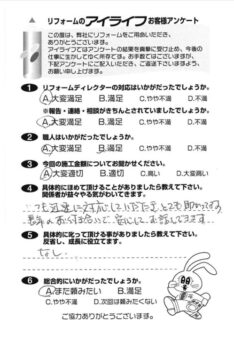 リフォームのアイライフお客様アンケート
この度は、弊社にリフォームをご用命いただき、
ありがとうございます。
アイライフではアンケートの結果を真摯に受け止め、今後の
仕事に生かしてゆく所存でおります。お手数ではございますが、
下記アンケートにご記入いただき、ご返送下さいますよう、
お願い申し上げます。
1 リフォームディレクターの対応はいかがだったでしょうか。
A.大変満足 B.満足 C.やや不満 D.不満
※報告・連絡・相談がきちんとされていましたでしょうか。
A.大変満足 B.満足 C.やや不満 D.不満
2 職人はいかがだったでしょうか。
A.大変満足 B.満足 C.やや不満 D.不満
3 今回の施工金額についてお聞かせください。
A.大変適切 B.適切 C.高い D.大変高い
4 具体的にほめて頂けることがありましたら教えて下さい。
関係者が益々やる気がわいてきます。
いつも迅速に対応していただき、とても助かってます。
安心して、お話しできます。
5 具体的に叱って頂ける事がありましたら教えて下さい。
反省し、成長に役立てます。
なし
6 総合的にいかがだったでしょうか。
A.また頼みたい B.満足
C.やや不満 D.次回は頼みたくない
ご協力ありがとうございます。